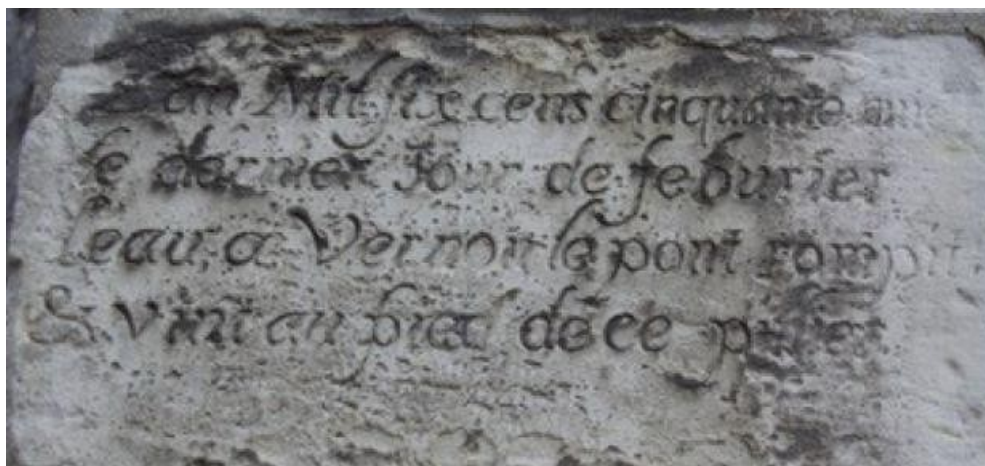 L'an Mil six cens cinquante
le dernier Jour de feburier
leau, a Vernon le pont rompit,
& vint au pied de ce